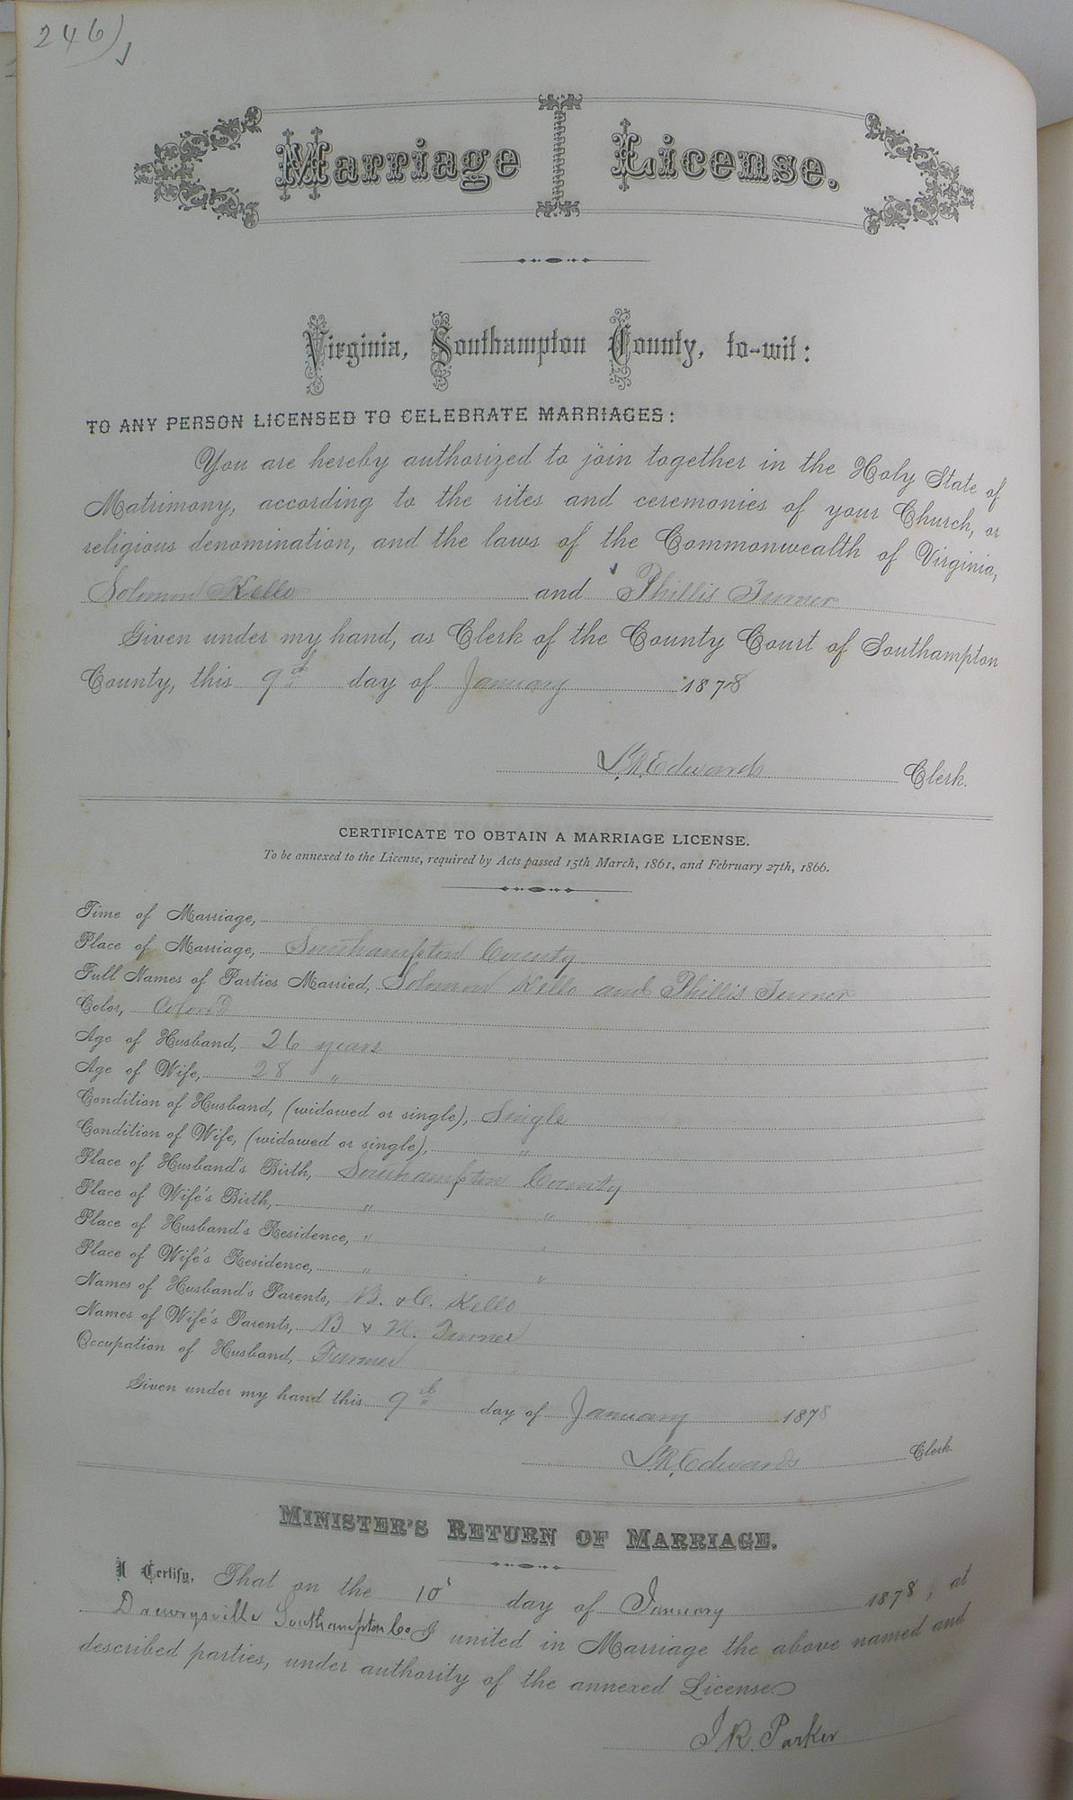 246)
Marriage License.
Virginia, Southampton County, to-wit:
TO ANY PERSON LICENSED TO CELEBRATE MARRIAGES:
You are hereby authorized to join together in the Holy State of
Matrimony, according to the rites and ceremonies of your Church, or
religious denomination, and the laws of the Commonwealth of Virginia,
Solomon Kello and Phillis Turner
Given under my hand, as Clerk of the County Court of Southampton
County, this 9th day of January 1878
L.R. Edwards Clerk.
CERTIFICATE TO OBTAIN A MARRIAGE LICENSE.
To be annexed to the License, required by Acts passed 15th March, 1861, and February 27th, 1866.
Time of Marriage,
Place of Marriage, Southampton County
Full Names of Parties Married, Solomon Kello and Phillis Turner
Color, Colored
Age of Husband, 26 years
Age of Wife, 28 "
Condition of Husband, (widowed or single), Single
Condition of Wife, (widowed or single), "
Place of Husband's Birth, Southampton County
Place of Wife's Birth, " "
Place of Husband's Residence, " "
Place of Wife's Residence, " "
Names of Husband's Parents, B. & C. Kello
Names of Wife's Parents, B & H. Turner
Occupation of Husband, Farmer
Given under my hand this 9th day of January 1878
L.R. Edwards Clerk.
MINISTER'S RETURN OF MARRIAGE.
I Certify, That on the 10 day of January 1878, at
Drewrysville Southampton Co I united in Marriage the above named and
described parties, under authority of the annexed License
J. R. Parker